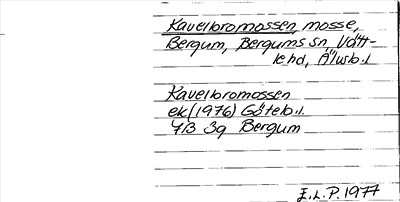 Kavelbromossen, mosse,
Bergum, Bergums sn, Vätt-
lehd, Älvsb.l
Kavelbromossen
ek (1976) Göteb.l.
7B 3g Bergum
E.L.P. 1977